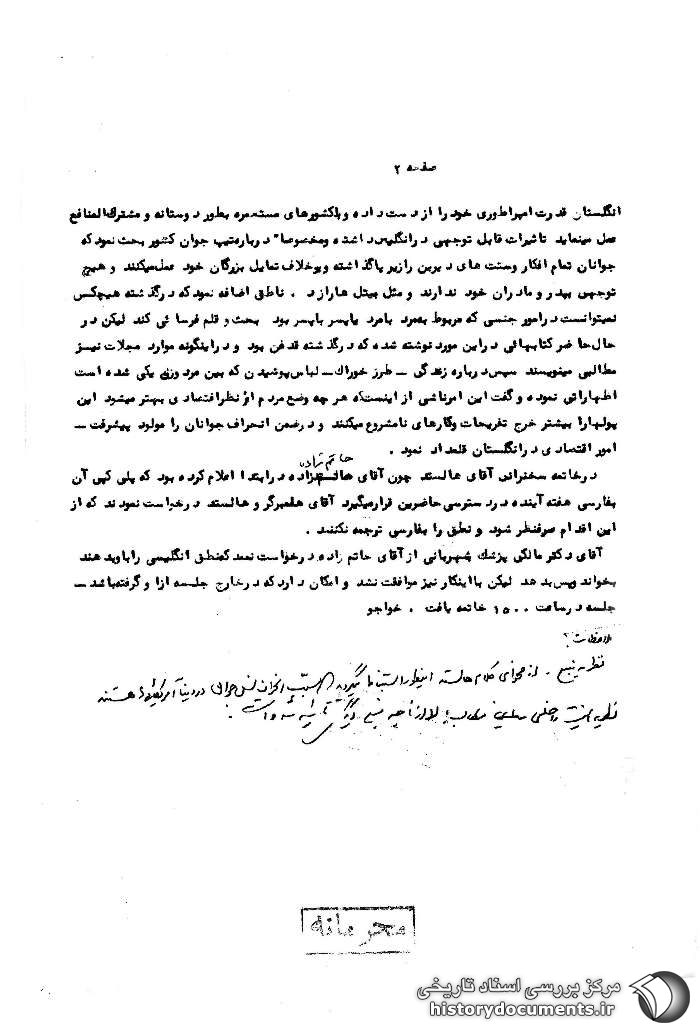 صفحه ۲
انگلستان قدرت امپراطوری خود را از دست داده و باکشورهای مستعمره بطور دوستانه و مشترك‌المنافع
عمل مینماید تاثیرات قابل توجهی در انگلیس داشته ومخصوصا" درباره‌تیپ جوان کشور بحث نمود که
جوانان تمام افکار وسنت های دیرین را زیر پا گذاشته و برخلاف تمایل بزرگان خود عمل‌میکنند و هیچ
توجهی بپدر و مادران خود ندارند و مثل بیتل هاراز د . ناطق اضافه نمود که درگذشته هیچکس
نمیتوانست در امور جنسی که مربوط بمرد بامرد یا پسر باپسر بود بحث و قلم فرسائی کند لیکن در
حال‌حاضر کتابهائی در این مورد نوشته شده که درگذشته قدغن بود و در اینگونه موارد مجلات نیز
مطالبی مینویسند سپس درباره زندگی - طرز خوراك - لباس پوشیدن که بین مرد وزن یکی شده است
اظهاراتی نمود و گفت این امرناشی از اینست‌که هرچه وضع مردم از نظراقتصادی بهتر میشود این
پولها را بیشتر خرج تفریحات وکارهای نامشروع میکنند و درضمن انحراف جوانان را مولود پیشرفت -
امور اقتصادی در انگلستان قلمداد نمود .
حاتم زاده
درخاتمه سخنرانی آقای هالستد چون آقای زاده در ابتدا اعلام کرده بود که پلی کپی آن
بفارسی هفته آینده در دسترسی حاضرین قرارمیگیرد آقای هلمبرگر و هالستد درخواست نمودند که از
این اقدام صرفنظر شود و نطق را بفارسی ترجمه نکنند .
آقای دکتر مالکی پزشك شهربانی از آقای حاتم زاده درخواست نمدکه‌نطق انگلیسی را باوید هند
بخواند وپس بدهد لیکن با اینکار نیز موافقت نشد و امکان دارد که درخارج جلسه از او گرفته‌باشد -
جلسه درساعت ۱۵۰۰ خاتمه یافت . خواجو
ملاحظات :
نظریه منبع . از فحوای کلام هالستد اینطور استنباط میگردید که مسبب انحراف نسل جوان در دنیا آمریکائیها هستند
نظریه امنیت داخلی
محرمانه
مرکز بررسی اسناد تاریخی
historydocuments.ir